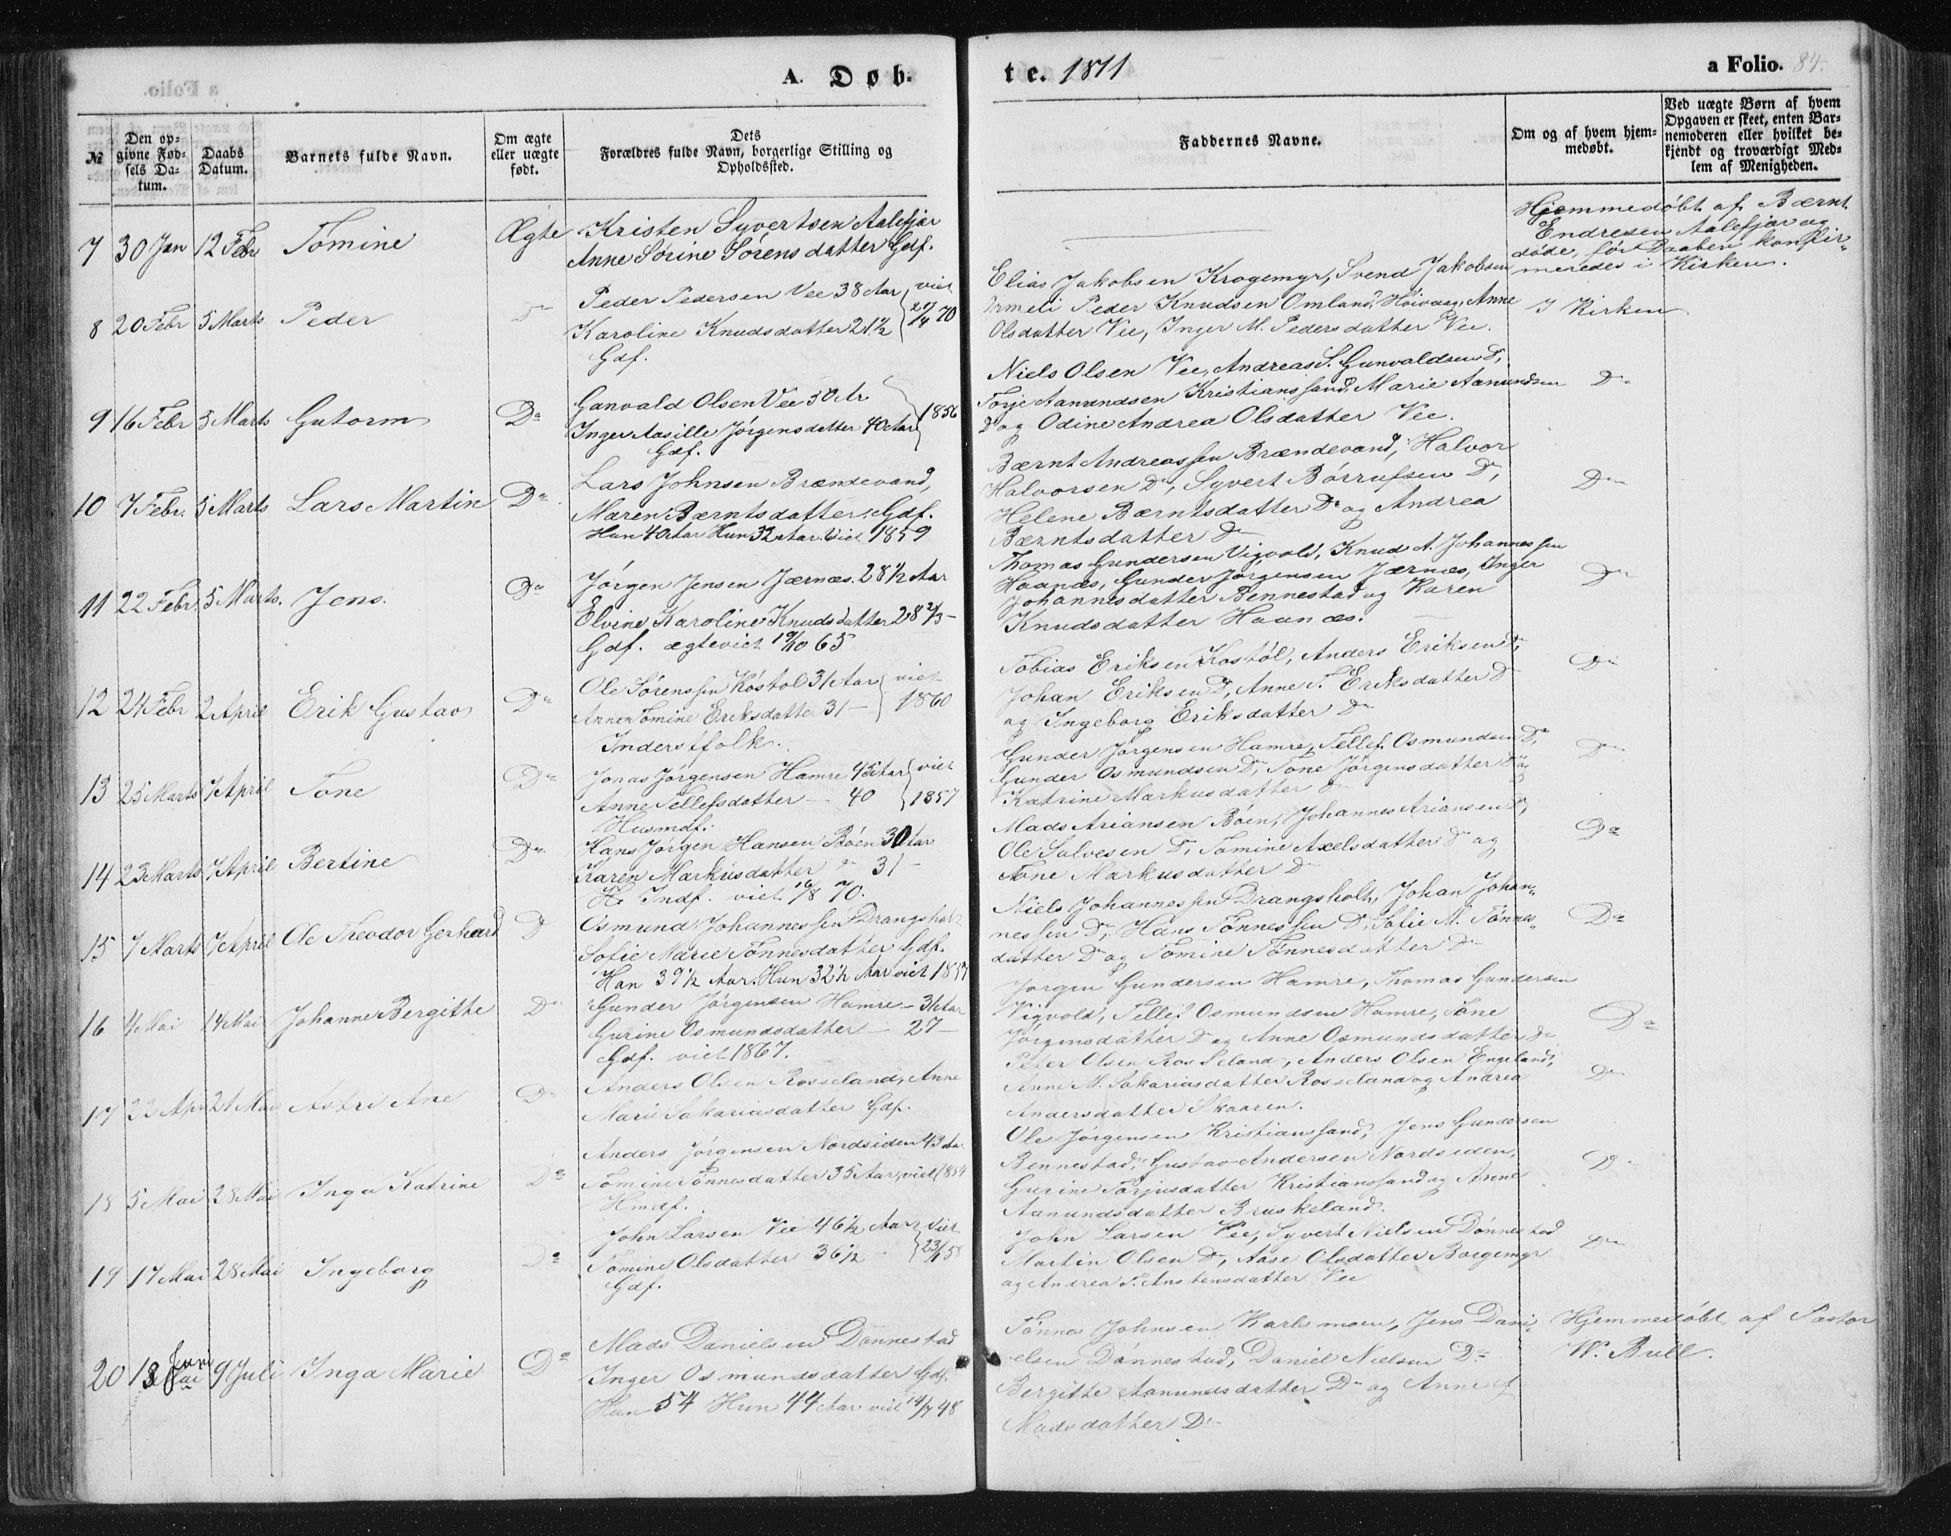 A. Døb
te. 1871
a Folio. 84.
№
Den op-
givne Fød-
sels Da-
tum.
Daabs
Datum.
Barnets fulde Navn.
Om ægte
eller uægte
født.
Dets
Forældres fulde Navn, borgerlige Stilling og
Opholdssted.
Faddernes Navne.
Om og af hvem hjem-
medøbt.
Ved uægte Børn af hvem
Opgaven er skeet, enten Bar-
nemoderen eller hvilket be-
kjendt og troværdigt Med-
lem af Menigheden.
7 30 Jan 12 Febr Tomine Ægte
Kristen Syvertsen Aalefjær
Anne Sørine Sørensdatter Gdf.
Hjemmedøbt af Bærnt
Endresen Aalefjær og
døde, før Daaben konfir-
meredes i Kirken.
8 20 Febr 5 Marts Peder
Peder Pedersen Vee 38 Aar viet
Karoline Knudsdatter 21½ 70
Gdf.
Elias Jakobsen Krogemyr, Svend Jakobsen
Peder Knudsen Omland, Høivaag, Anne
Olsdatter Vee, Inger M. Pedersdatter Vee.
I Kirken
9 16 Febr 5 Marts Gutorm Do
Gunvald Olsen Vee 50 Ar
Inger Aasille Jørgensdatter 40 Aar 1856
Gdf.
Niels Olsen Vee, Andreas S. Gunvaldsen Do,
Torje Aanundsen Kristianssand, Marie Aanundsen
Do og Odine Andrea Olsdatter Vee.
Do
10 7 Febr. 5 Marts Lars Martin Do
Lars Johnsen Brændevand,
Maren Bærntsdatter. Gdf.
Han 40 Aar Hun 32 Aar. Viet 1859
Bærnt Andreassen Brændevand, Halvor
Halvorsen Do, Syvert Børrufsen Do,
Helene Bærntsdatter Do og Andrea
Bærntsdatter Do
Do
11 22 Febr 5 Marts. Jens. Do
Jørgen Jensen Jærnæs. 28½ Aar
Elvine Karoline Knudsdatter 28⅔ –
Gdf. ægteviet 19/10 65
Thomas Gundersen Vigvold, Knud A. Johannessen
Haanæs, Gunder Jørgensen Jærnæs, Inger
Johannesdatter Bennestad og Karen
Knudsdatter Haanæs.
Do
12 24 Febr 2 April Erik Gustav Do
Ole Sørenssen Kostøl 31 Aar viet
Annen Tomine Eriksdatter 31 – 1860
Inderstfolk.
Tobias Eriksen Kostøl, Anders Eriksen Do,
Johan Eriksen Do, Anne T. Eriksdatter Do
og Ingeborg Eriksdatter Do
Do
13 25 Marts 7 April Tone Do
Jonas Jørgensen Hamre 45 Aar viet
Anne Tellefsdatter – 40 1857
Husmdf.
Gunder Jørgensen Hamre, Tellef Osmundsen Do,
Gunder Osmundsen Do, Tone Jørgensdatter Do og
Katrine Markusdatter Do
Do
14 23 Marts 7 April Bertine Do
Hans Jørgen Hansen Bøen 30 Aar
Karen Markusdatter Do 31 –
Indf. viet 16/8 70.
Mads Ariansen Bøen, Johannes Ariansen Do,
Ole Salvesen Do, Tomine Axelsdatter Do og
Tone Markusdatter Do
Do
15 7 Marts 7 April Ole Theodor Gerhard Do
Osmund Johannessen Drangsholt
Sofie Marie Tønnesdatter Gdf.
Han 39½ Aar. Hun 32½ Aar viet 1857
Niels Johannessen Drangsholt, Johan Johan-
nessen Do, Hans Tønnessen Do, Sofie M. Tønnes-
datter Do og Tomine Tønnesdatter Do
Do
16 4 Mai 14 Mai Johanne Bergitte Do
Gunder Jørgensen Hamre – 31 Aar
Gurine Osmundsdatter – 27 –
Gdf. viet 1867.
Jørgen Gundersen Hamre, Thomas Gundersen
Vigvold, Tellef Osmundsen Hamre, Tone
Jørgensdatter Do og Anne Osmundsdatter Do
Do
17 22 Apr 21 Mai Astri Ane Do
Anders Olsen Rosseland, Anne
Marie Sakariasdatter Gdf.
Peter Olsen Rosseland, Anders Olsen Engeland,
Anne M. Sakariasdatter Rosseland og Andrea
Andersdatter Skaaren.
Do
18 5 Mai 28 Mai Inga Katrine Do
Anders Jørgensen Nordsiden 43 Aar
Tomine Tønnesdatter 35 Aar, viet 1854
Hmdf.
Ole Jørgensen Kristianssand, Jens Gundersen
Bennestad, Gustav Andersen Nordsiden,
Gurine Torjusdatter Kristianssand og Anne
Aanundsdatter Bruskeland.
Do
19 17 Mai 28 Mai Ingeborg Do
John Larsen Vee 46½ Aar viet
Tomine Olsdatter 36½ 23/1 58
Gdf.
John Larsen Vee, Syvert Nielsen Dønnestad
Martin Olsen Do, Aase Olsdatter Boegemyr
og Andrea T. Anstensdatter Vee
Do
20 13 Juni 9 Juli Inga Marie Do
Mads Danielsen Dønnestad
Inger Osmundsdatter Gdf.
Han 54 Hun 44 Aar viet 14/7 48
Tønnes Johnsen Karlsmoen, Jens Dani-
elsen Dønnestad, Daniel Nielsen Do
Bergitte Aanundsdatter Do og Anne A
Madsdatter Do
Hjemmedøbt af Pastor
W. Bull.